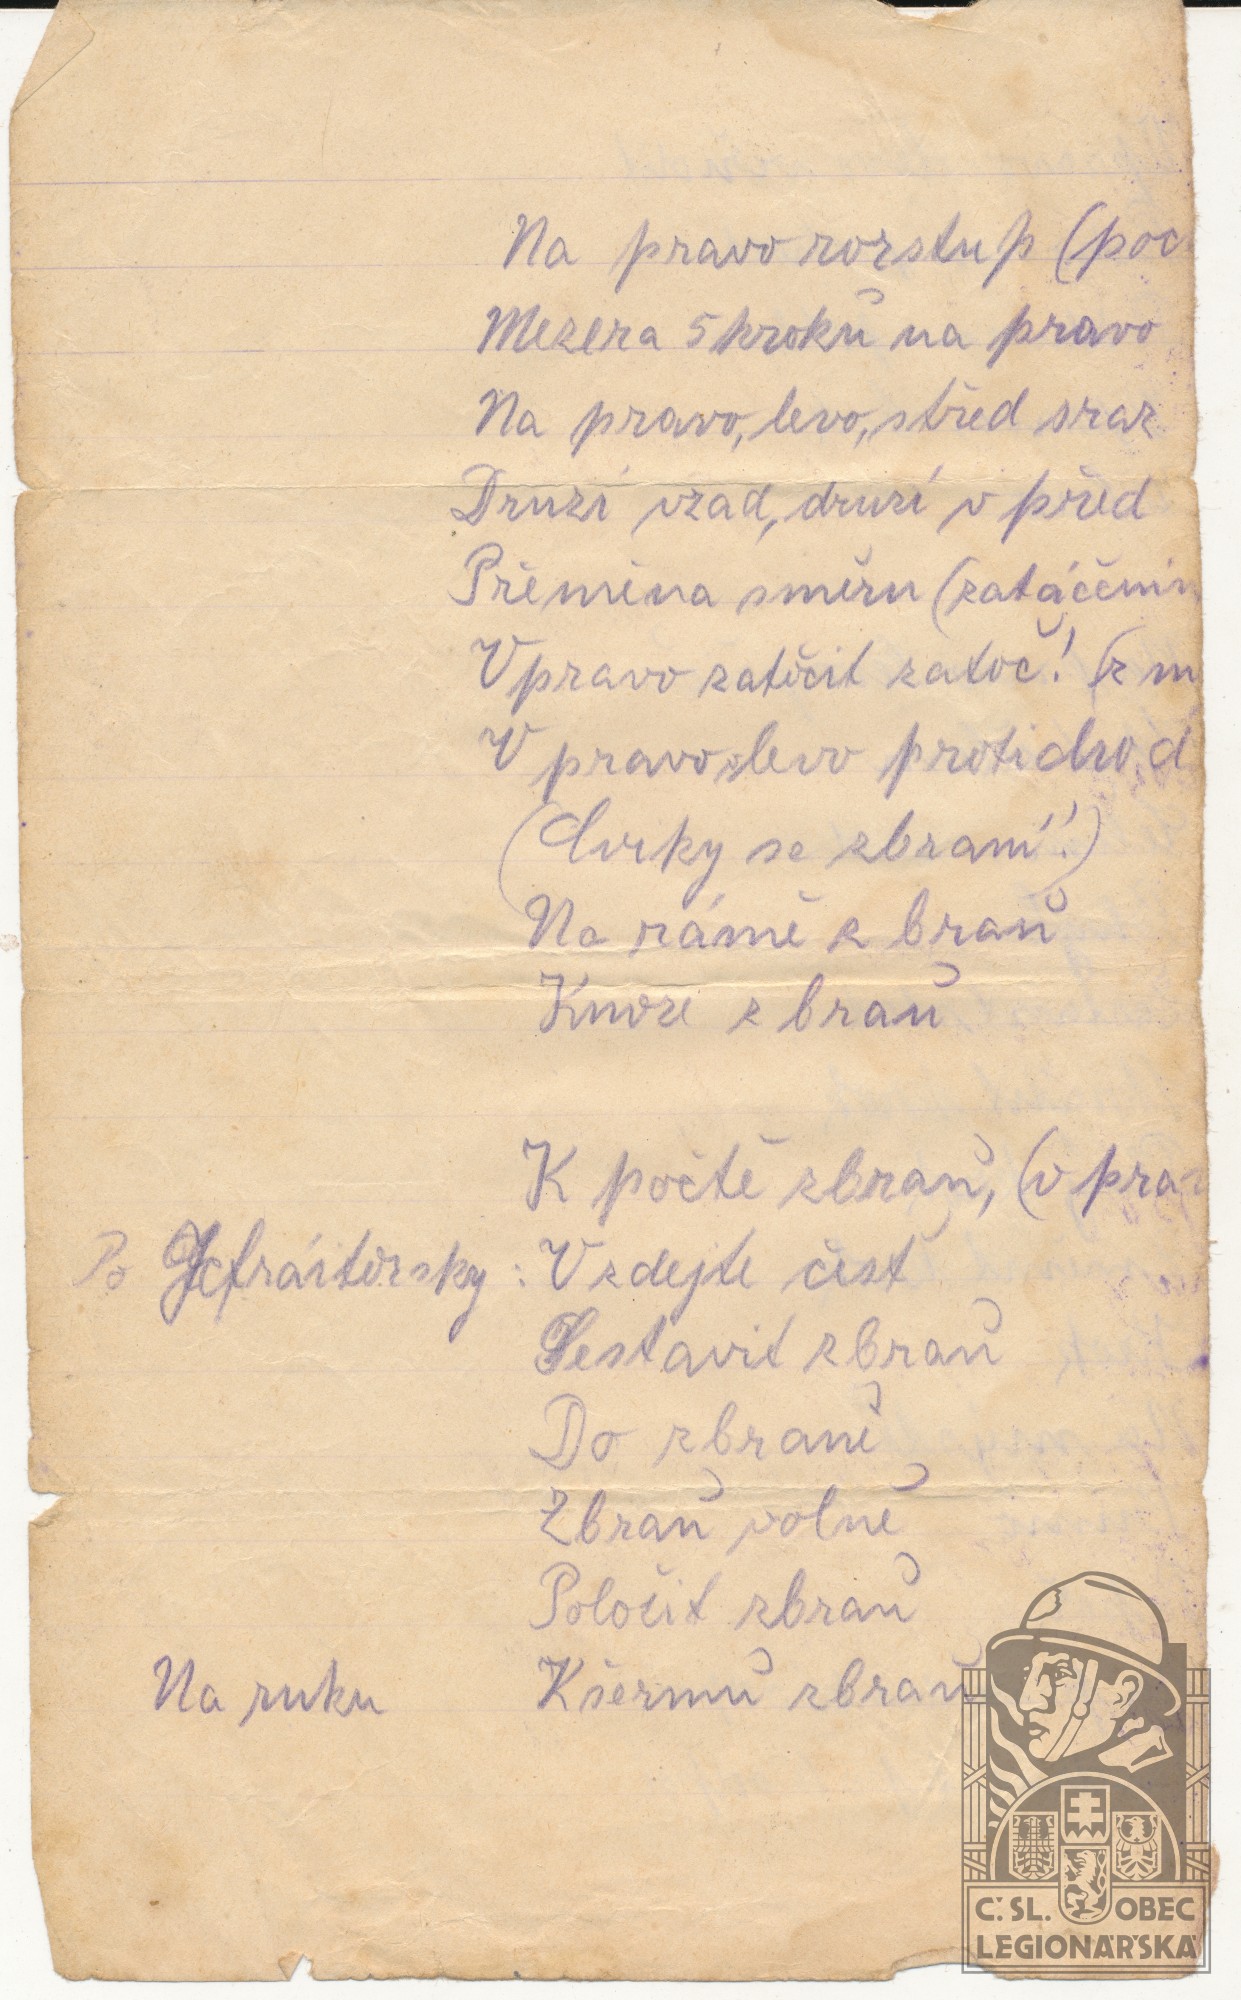 Na pravo rozstup (poc
Mezera 5 kroků na pravo
Na pravo, levo, střed sraz
Druzí vzad, druzí v před
Přeměna směru (zatáčením
V pravo zatočit zatoč! (z m
V pravo, levo protichod
(Cviky se zbraní!)
Na rámě zbraň
K noze zbraň
K poctě zbraň, (v pra
Po Jefrájtorsky: Vzdejte čest
Sestavit zbraň
Do zbraně
Zbraň volně
Položit zbraň
Na ruku K šermu zbraň
Č. SL. OBEC
LEGIONÁŘSKÁ